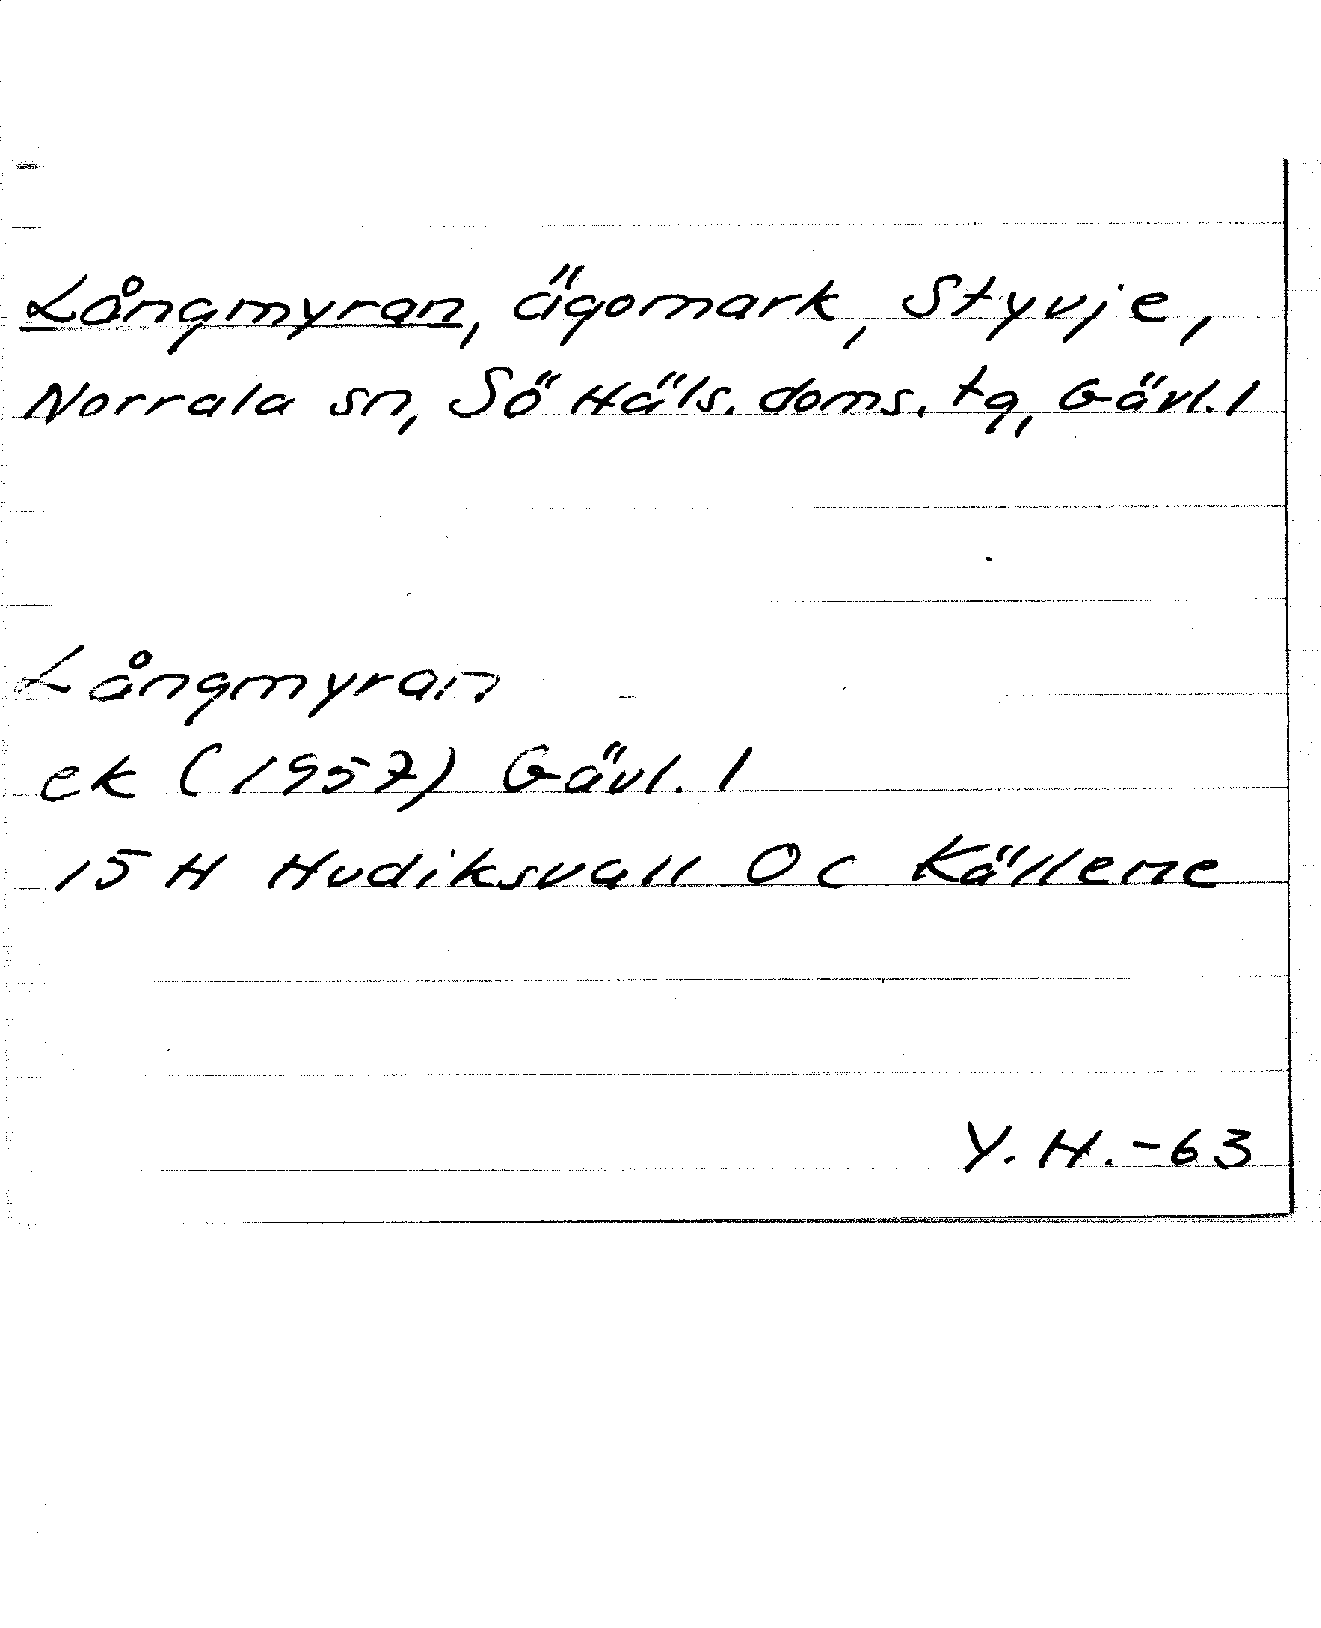 Långmyran, ägomark, Styvje,
Norrala sn, Sö Häls. doms. tg, Gävl. l
Långmyran
ek (1957) Gävl. l
15 H Hudiksvall 0 c Källene
Y. H. -63